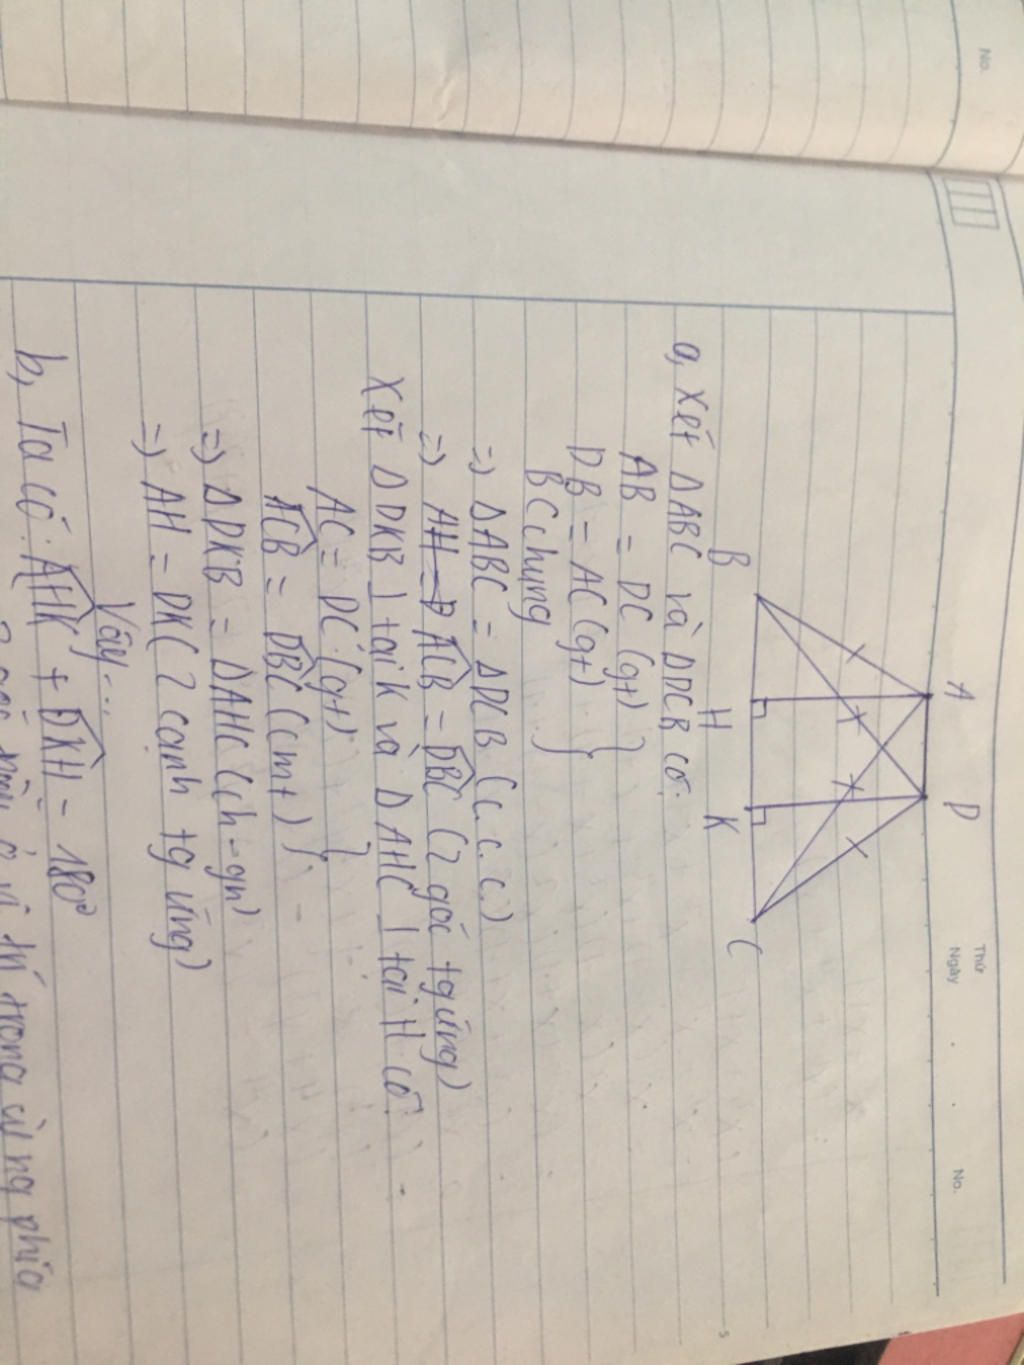 No.
Thứ
Ngày
No.
A D
B H K C
a, Xét ΔABC và ΔDCB có:
AB = DC (gt)
DB = AC (gt) }
BC chung
=) ΔABC = ΔDCB (c.c.c)
=) ACB = DBC (2 góc tg ứng)
Xét ΔDKB ⊥ tại K và ΔAHC ⊥ tại H có:
AC = DC (gt) }
ACB = DBC (cmt)
=) ΔDKB = ΔAHC (ch-gn)
=) AH = DK (2 cạnh tg ứng)
Vậy...
b, Ta có: AHK + DKH = 180°
ở vị trí trong cùng phía
5